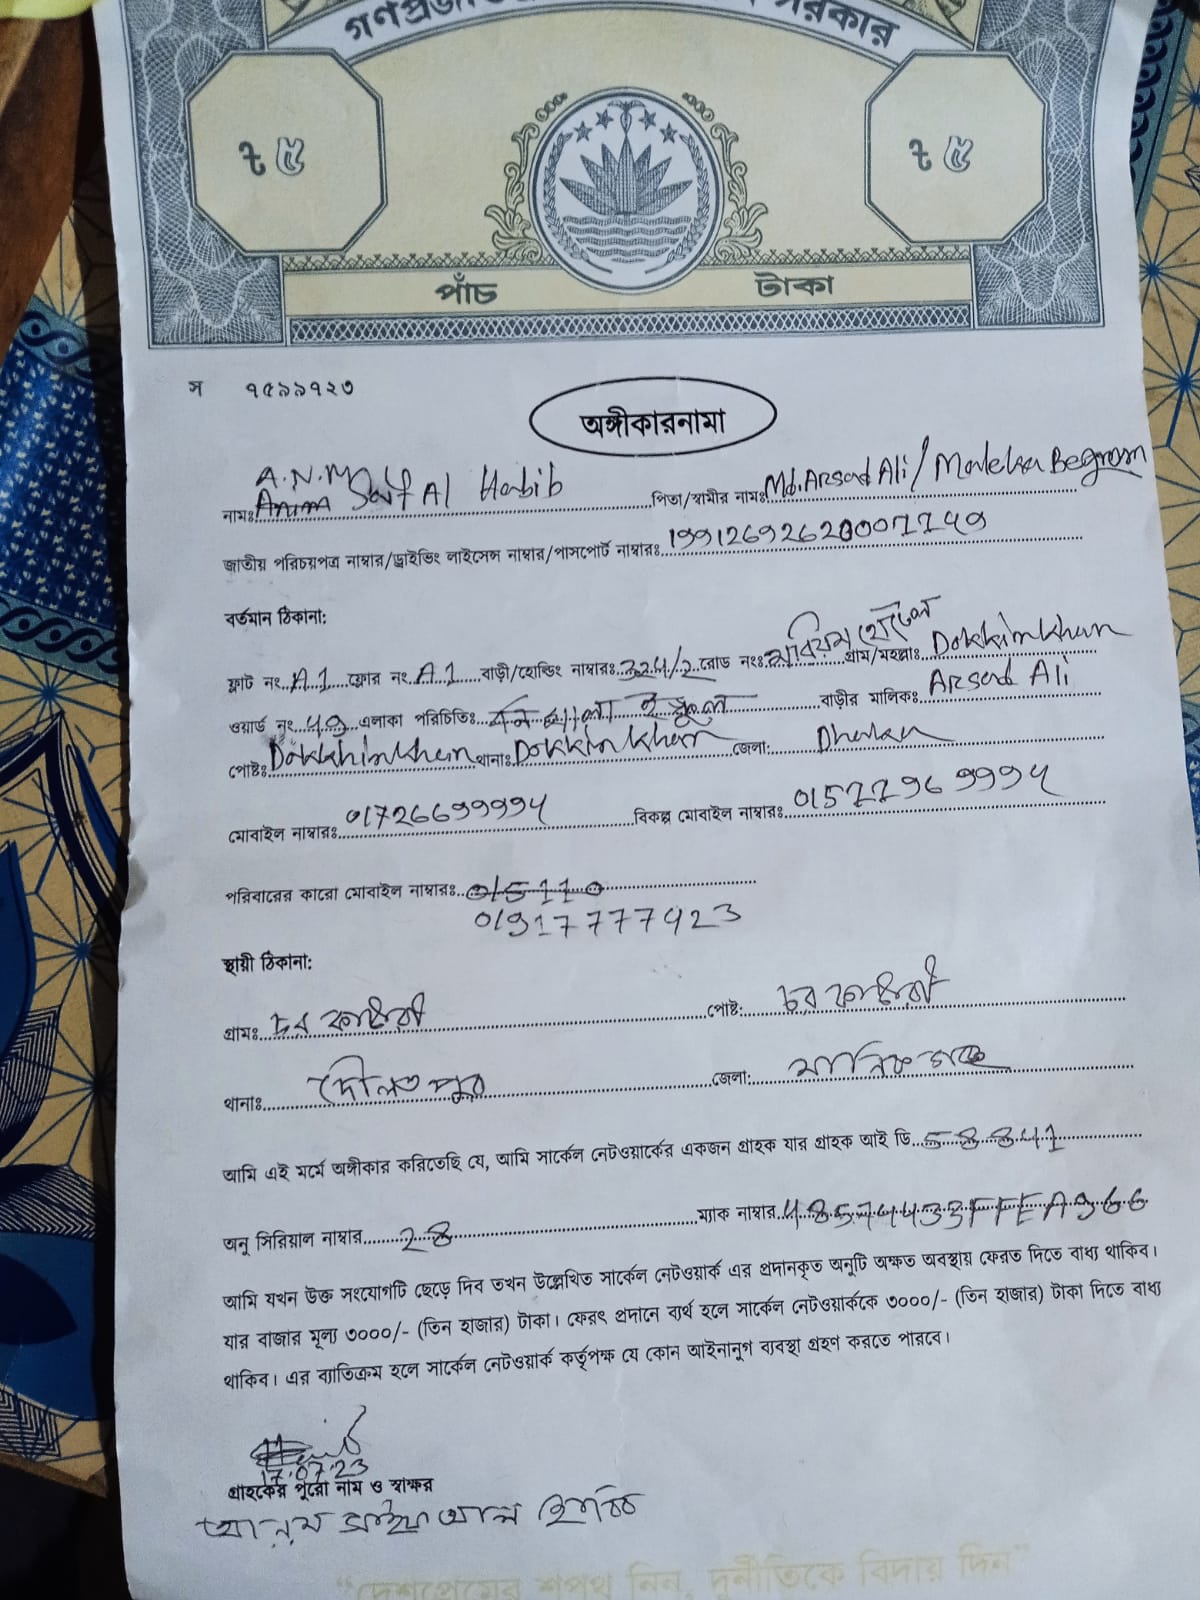 গণপ্রজা রকার
৳ ৫ ৳ ৫
পাঁচ টাকা
স ৭৫৯৯৭২৩
অঙ্গীকারনামা
A.N.M
নামঃ Anam Saif Al Habib পিতা/স্বামীর নামঃ Md. Arsad Ali / Maleka Begrom
জাতীয় পরিচয়পত্র নাম্বার/ড্রাইভিং লাইসেন্স নাম্বার/পাসপোর্ট নাম্বারঃ
বর্তমান ঠিকানা:
ফ্লাট নং. A1 ফ্লোর নং. A.1 বাড়ী/হোল্ডিং নাম্বারঃ 324/2 রোড নংঃ গ্রাম/মহল্লাঃ Dokkinkhan
ওয়ার্ড নং. 49 এলাকা পরিচিতিঃ বাড়ীর মালিকঃ Arsad Ali
পোষ্টঃ Dokkhinkhan থানাঃ Dokkinkhan জেলা: Dhaka
মোবাইল নাম্বারঃ 01726699994 বিকল্প মোবাইল নাম্বারঃ 01521969994
পরিবারের কারো মোবাইল নাম্বারঃ
01917777923
স্থায়ী ঠিকানা:
গ্রামঃ চর পোষ্ট: চর
থানাঃ দৌলতপুর জেলা: মানিকগঞ্জ
আমি এই মর্মে অঙ্গীকার করিতেছি যে, আমি সার্কেল নেটওয়ার্কের একজন গ্রাহক যার গ্রাহক আই ডি. 58841
অনু সিরিয়াল নাম্বার 28 ম্যাক নাম্বার. 48574433FFEA966
আমি যখন উক্ত সংযোগটি ছেড়ে দিব তখন উল্লেখিত সার্কেল নেটওয়ার্ক এর প্রদানকৃত অনুটি অক্ষত অবস্থায় ফেরত দিতে বাধ্য থাকিব।
যার বাজার মূল্য ৩০০০/- (তিন হাজার) টাকা। ফেরৎ প্রদানে ব্যর্থ হলে সার্কেল নেটওয়ার্ককে ৩০০০/- (তিন হাজার) টাকা দিতে বাধ্য
থাকিব। এর ব্যাতিক্রম হলে সার্কেল নেটওয়ার্ক কর্তৃপক্ষ যে কোন আইনানুগ ব্যবস্থা গ্রহণ করতে পারবে।
17.07.23
গ্রাহকের পুরো নাম ও স্বাক্ষর
আ ন ম সাইফ আল হাবিব
“দেশপ্রেমের শপথ নিন, দুর্নীতিকে বিদায় দিন”